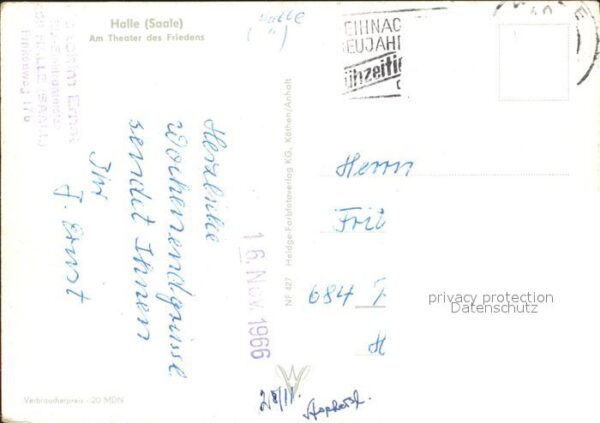 Halle (Saale)
Am Theater des Friedens
Halle
EIHNAC
EUJAHR
ühzeitig
Herzliche
Wochenendgrüsse
sendet Ihnen
Ihr
J. Ernst
16. Nov. 1966
NF 427 Heldge-Farbfotoverlag KG, Köthen/Anhalt
Herrn
684
H
privacy protection
Datenschutz
Verbraucherpreis -20 MDN